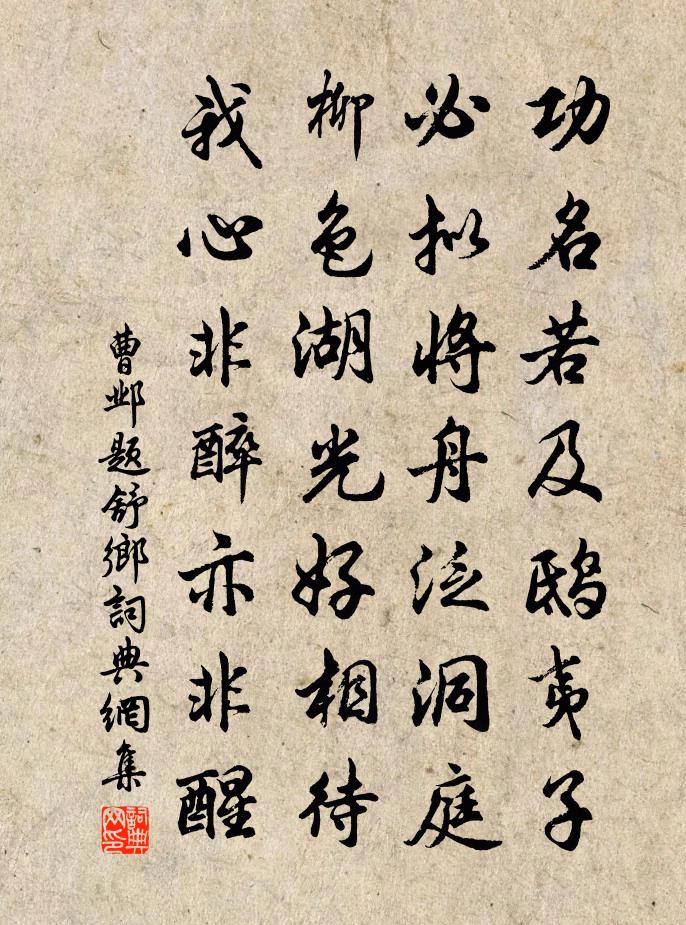 功名若及鴟夷子
必拟將舟泛洞庭
柳色湖光好相待
我心非醉亦非醒
曹邺题舒鄉詞典網集
詞典
网印